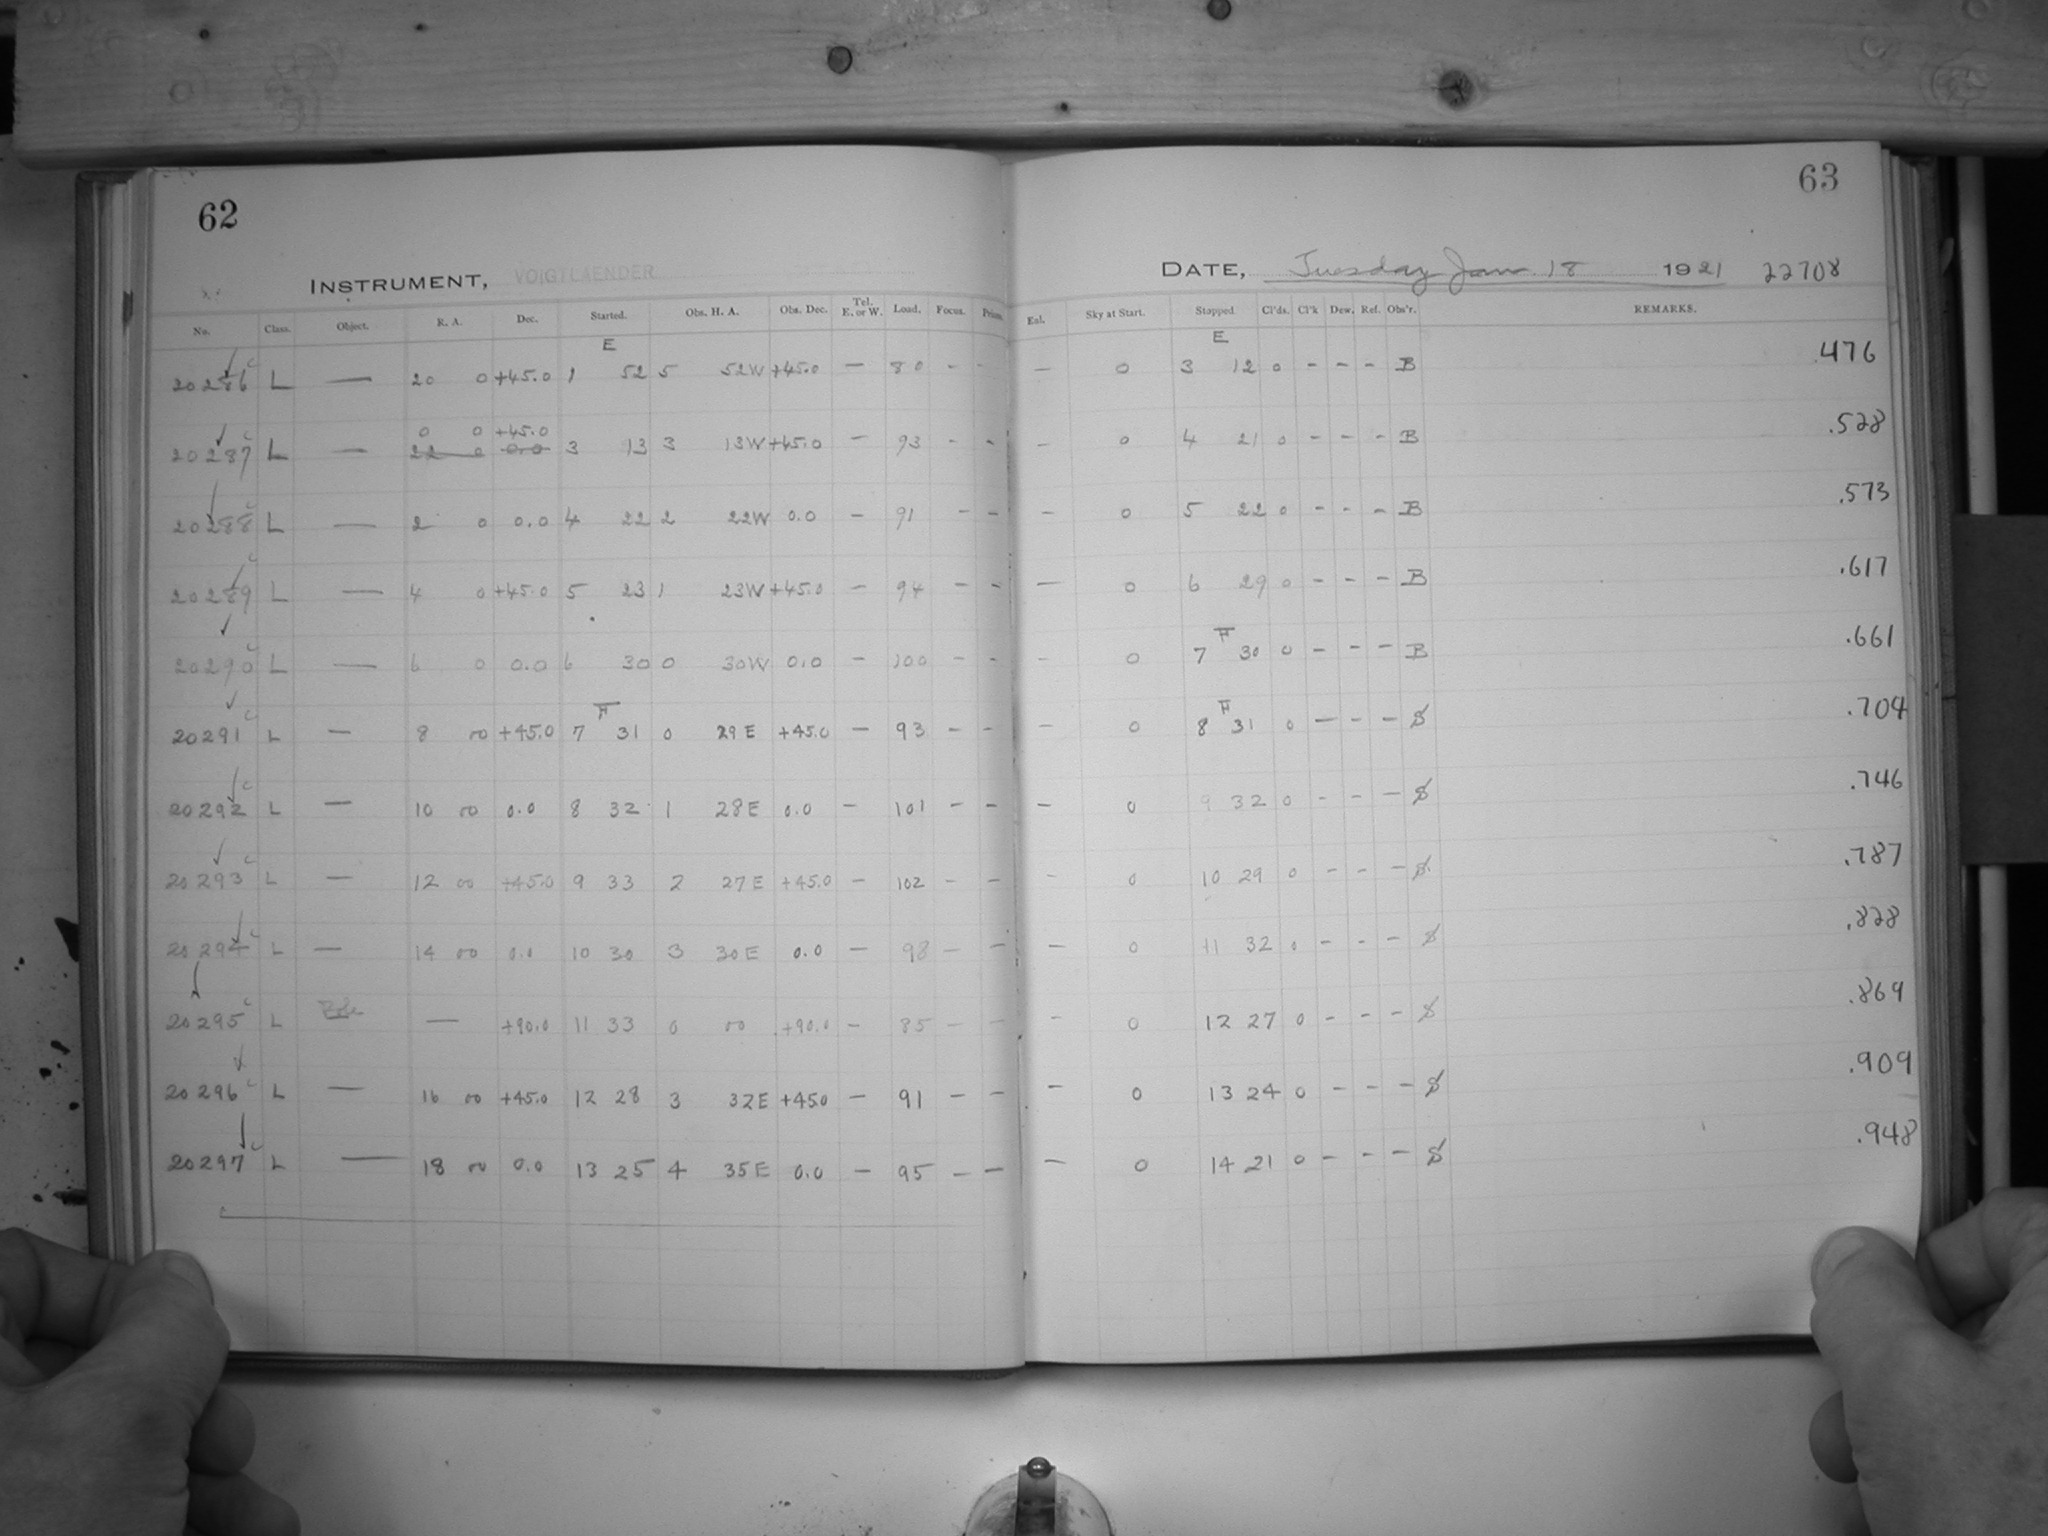 62
63
INSTRUMENT, VOIGTLAENDER
DATE, Tuesday Jan 18 1921 22708
No. Class. Object. R. A. Dec. Started. Obs. H. A. Obs. Dec. Tel. E. or W. Load. Focus. Prism. Exl. Sky at Start. Stopped Cl'ds. Cl'k Dew. Ref. Obs'r. REMARKS.
E E
20286 c L — 20 0 +45.0 1 52 5 52W +45.0 — 80 - - — 0 3 12 0 - - - B .476
0 0 +45.0
20287 c L — 22 0 0.0 3 13 3 13W +45.0 - 93 - - - 0 4 21 0 - - - B .528
20288 c L — 2 0 0.0 4 22 2 22W 0.0 - 91 - - - 0 5 22 0 - - - B .573
20289 c L — 4 0 +45.0 5 23 1 23W +45.0 - 94 - - — 0 6 29 0 - - - B .617
20290 c L — 6 0 0.0 6 30 0 30W 0.0 - 100 - - - 0 7 30 0 - - - B .661
20291 c L — 8 00 +45.0 7 31 0 29 E +45.0 — 93 - - - 0 8 31 0 — - - S .704
20292 c L — 10 00 0.0 8 32 1 28 E 0.0 - 101 - - - 0 9 32 0 - - - S .746
20293 c L — 12 00 +45.0 9 33 2 27 E +45.0 - 102 - - - 0 10 29 0 - - - S .787
20294 c L — 14 00 0.0 10 30 3 30 E 0.0 - 98 - - - 0 11 32 0 - - - S .828
20295 c L Pole — +90.0 11 33 0 00 +90.0 - 85 - - - 0 12 27 0 - - - S .869
20296 c L — 16 00 +45.0 12 28 3 32 E +45.0 - 91 - - - 0 13 24 0 - - - S .909
20297 c L — 18 00 0.0 13 25 4 35 E 0.0 - 95 - - - 0 14 21 0 - - - S .948